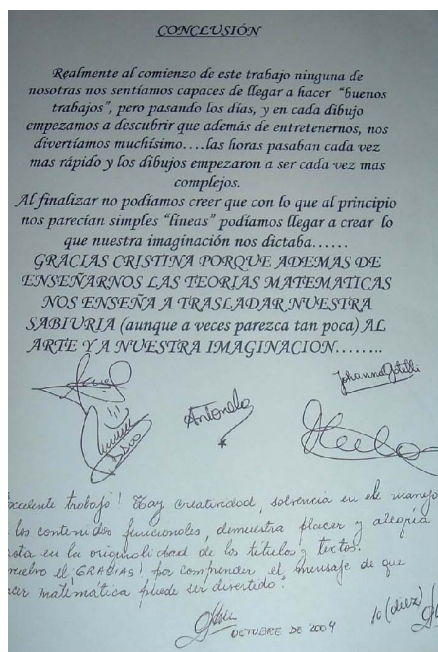 CONCLUSIÓN
Realmente al comienzo de este trabajo ninguna de
nosotras nos sentíamos capaces de llegar a hacer "buenos
trabajos", pero pasando los días, y en cada dibujo
empezamos a descubrir que además de entretenernos, nos
divertíamos muchísimo....las horas pasaban cada vez
mas rápido y los dibujos empezaron a ser cada vez mas
complejos.
Al finalizar no podíamos creer que con lo que al principio
nos parecían simples "líneas" podíamos llegar a crear lo
que nuestra imaginación nos dictaba......
GRACIAS CRISTINA PORQUE ADEMAS DE
ENSEÑARNOS LAS TEORIAS MATEMATICAS
NOS ENSEÑA A TRASLADAR NUESTRA
SABIURIA (aunque a veces parezca tan poca) AL
ARTE Y A NUESTRA IMAGINACION........
Johanna Gotelli
Antonela
Excelente trabajo! Hay creatividad, solvencia en el manejo
los contenidos funcionales, demuestra placer y alegría
nota en la originalidad de los títulos y textos.
el "GRACIAS! por comprender el mensaje de que
cer matemática puede ser divertido.
OCTUBRE DE 2004
10 (diez)